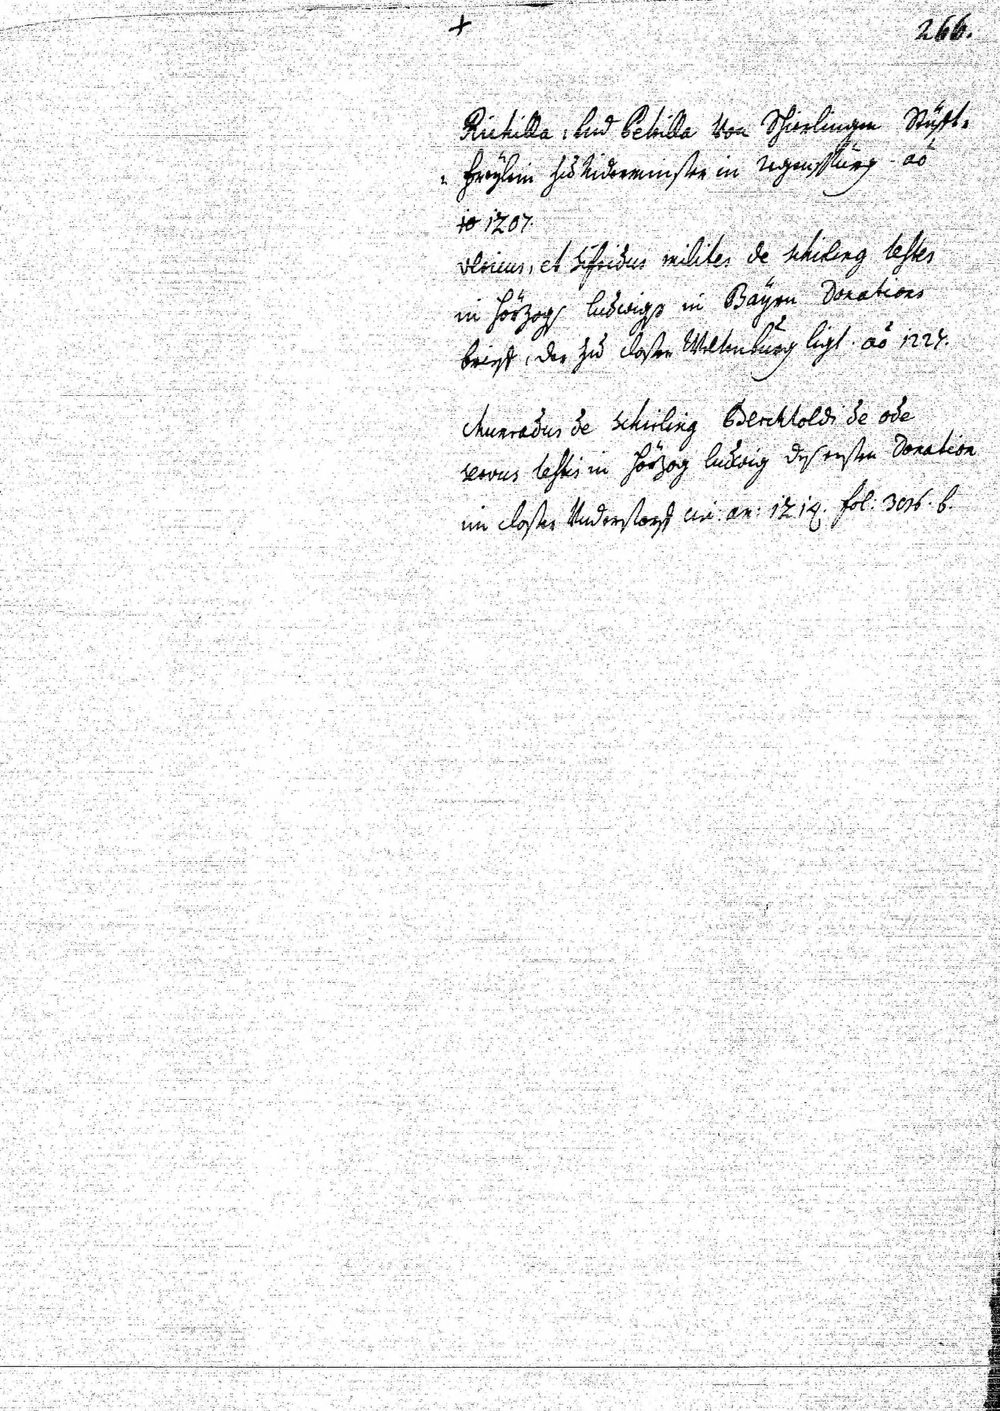 +
266.
Richilla, und Petrilla von Schierlingen Stüfft=
=freylein zu Nidermünster in regenspurg aō
1207.
Ulricus, et Sifridus milites de schirling testes
in Hörzog ludwigs in Bäyrn Donations
brieff, der zu closter Weltenburg ligt. aō 1224.
Chunradus de schirling Berchtoldi de ode
servus testis in Hörzog ludwig deß ersten Donation
im closter circ: an: 1214. fol: b.